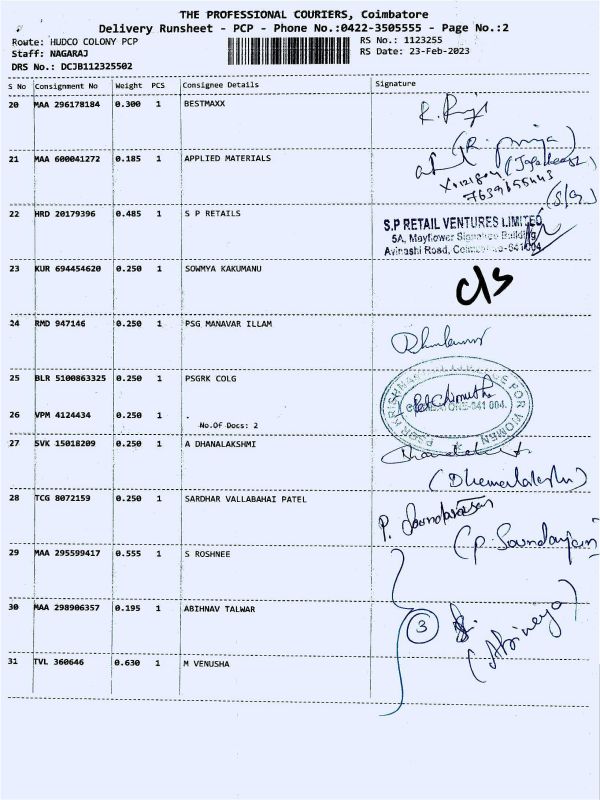 THE PROFESSIONAL COURIERS, Coimbatore
Delivery Runsheet - PCP - Phone No.:0422-3505555 - Page No.:2
Route: HUDCO COLONY PCP
RS No.: 1123255
Staff: NAGARAJ
RS Date: 23-Feb-2023
DRS No.: DCJB112325502
S No Consignment No Weight PCS Consignee Details Signature
20 MAA 296178184 0.300 1 BESTMAXX
(R. priya)
21 MAA 600041272 0.185 1 APPLIED MATERIALS
7639655443
22 HRD 20179396 0.485 1 S P RETAILS
S.P RETAIL VENTURES LIMITED
5A, Mayflower Signature Building
Avinashi Road, Coimbatore-641004
23 KUR 694454620 0.250 1 SOWMYA KAKUMANU
c/s
24 RMD 947146 0.250 1 PSG MANAVAR ILLAM
25 BLR 5100863325 0.250 1 PSGRK COLG
FOR WOMEN
641 004.
26 VPM 4124434 0.250 1 .
No.Of Docs: 2
27 SVK 15018209 0.250 1 A DHANALAKSHMI
28 TCG 8072159 0.250 1 SARDHAR VALLABAHAI PATEL
29 MAA 295599417 0.555 1 S ROSHNEE
30 MAA 298906357 0.195 1 ABIHNAV TALWAR
3
(Abineya)
31 TVL 360646 0.630 1 M VENUSHA